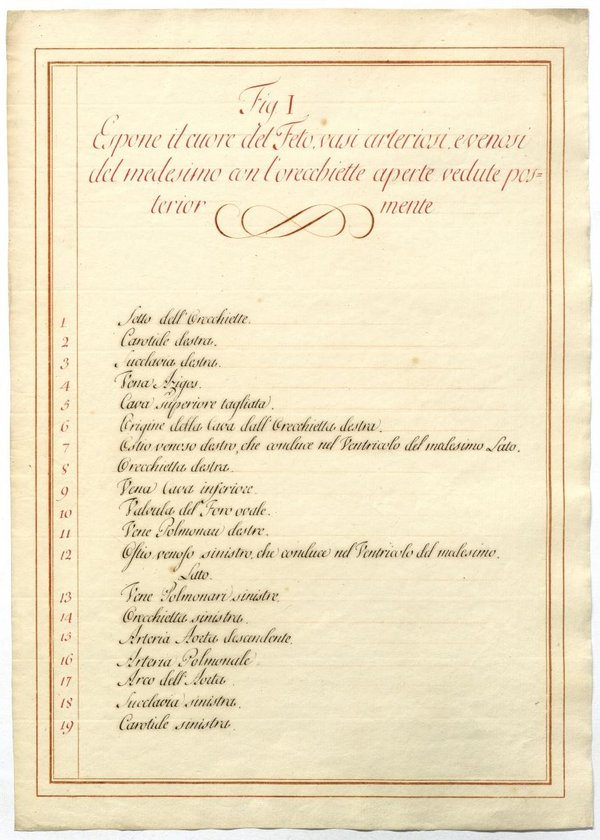 Fig I
Espone il cuore del Feto, vasi arteriosi, e venosi
del medesimo con l'orecchiette aperte vedute pos=
terior mente
1 Setto dell'Orecchiette.
2 Carotide destra.
3 Succlavia destra.
4 Vena Aziges.
5 Cava superiore tagliata.
6 Origine della Cava dall'Orecchietta destra.
7 Ostio venoso destro, che conduce nel Ventricolo del medesimo Lato.
8 Orecchietta destra.
9 Vena Cava inferiore.
10 Valvula del Foro ovale.
11 Vene Polmonari destre.
12 Ostio venoso sinistro, che conduce nel Ventricolo del medesimo
Lato.
13 Vene Polmonari sinistre.
14 Orecchietta sinistra.
15 Arteria Aorta descendente.
16 Arteria Polmonale.
17 Arco dell'Aorta.
18 Succlavia sinistra.
19 Carotide sinistra.